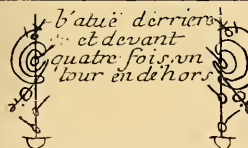 b'atuë derriere
et devant
quatre fois, un
tour en de hors